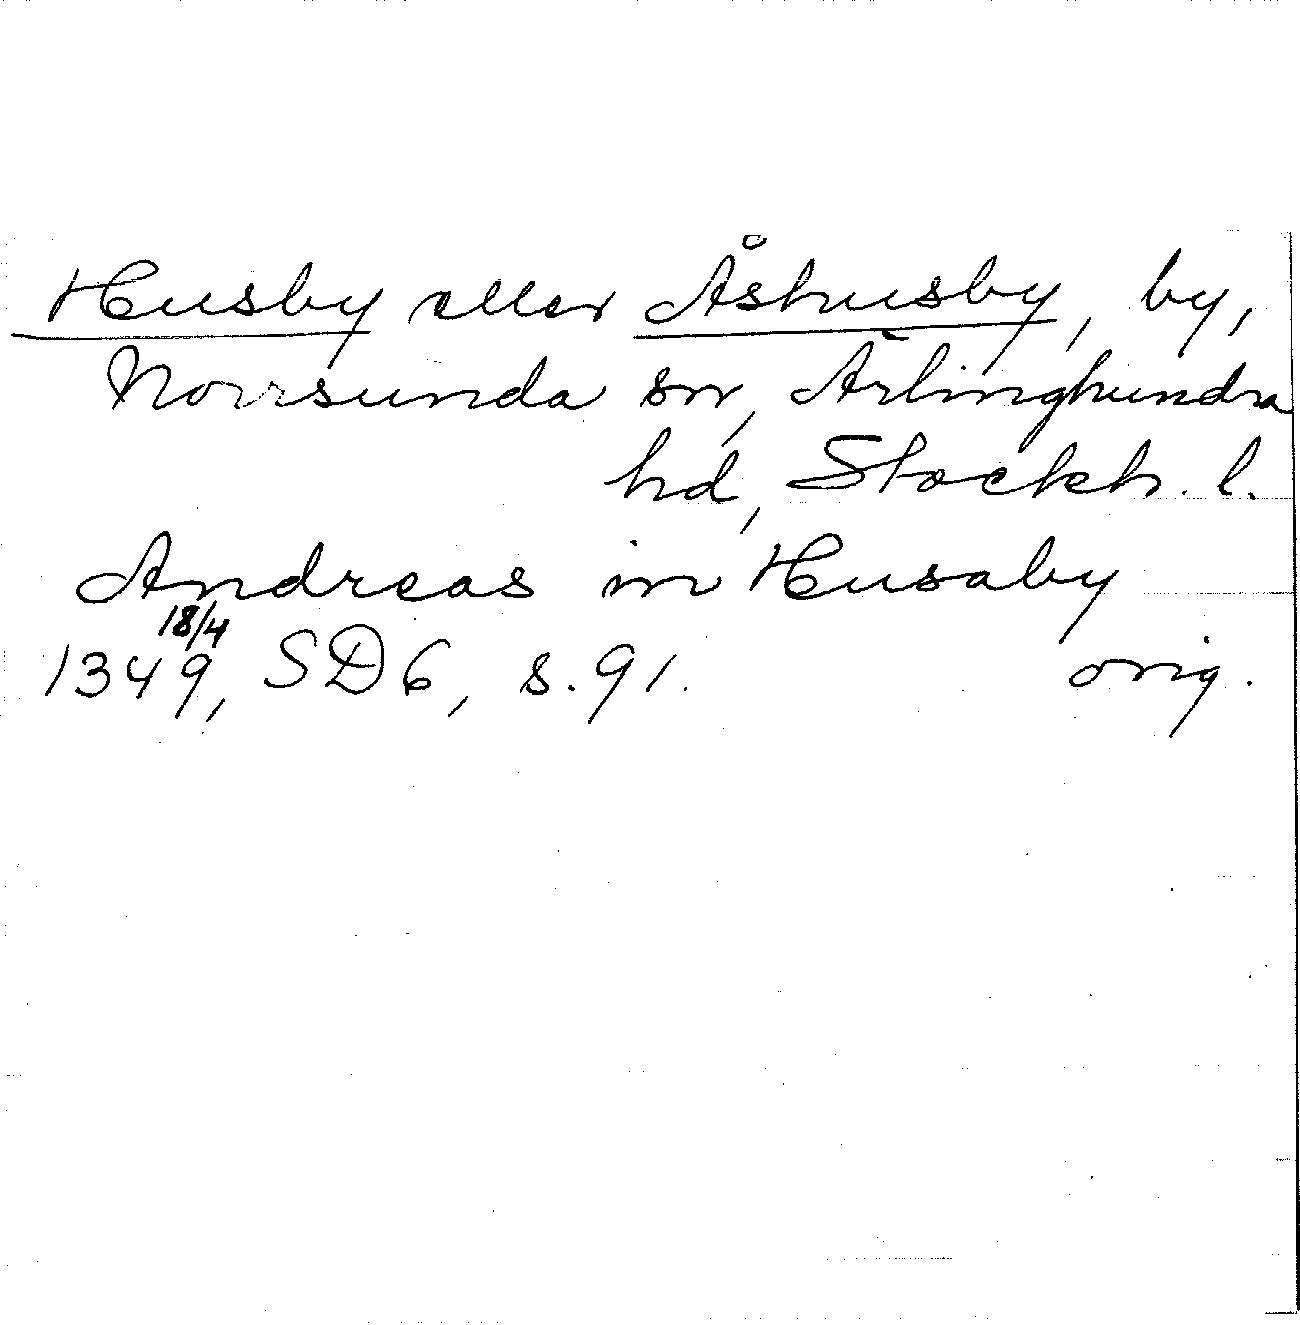 Husby eller Åshusby, by,
Norrsunda sn, Ärlinghundra
hd, Stockh. l.
Andreas in Husaby
18/4
1349, SD6, s. 91. orig.